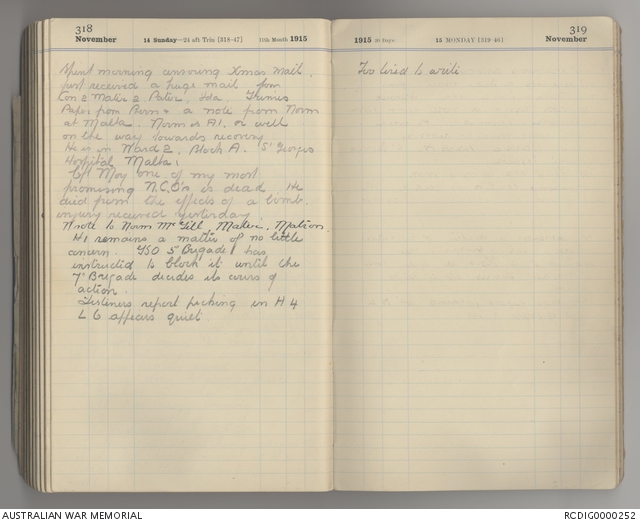 318
November 14 Sunday—24 aft Trin [318-47] 11th Month 1915
Spent morning censoring Xmas Mail.
Just received a huge mail from
Con 2 Mater 2 Pater, Ida,
Paper from Bern & a note from Norm
at Malta. Norm is A1, or well
on the way towards recovery
He is in Ward 2, Block A. St Georges
Hospital Malta.
Cpl Moy one of my most
promising N.C.O's is dead. He
died from the effects of a bomb
injury received yesterday.
Wrote to Norm Mc Gill, Mater, Matson
H1 remains a matter of no little
concern. GSO 5 Brigade has
instructed to block it until the
7 Brigade decides its course of
action.
Listeners report picking in H 4
L 6 appears quiet
319
1915 30 Days 15 MONDAY [319-46] November
Too tired to write
AUSTRALIAN WAR MEMORIAL
RCDIG0000252